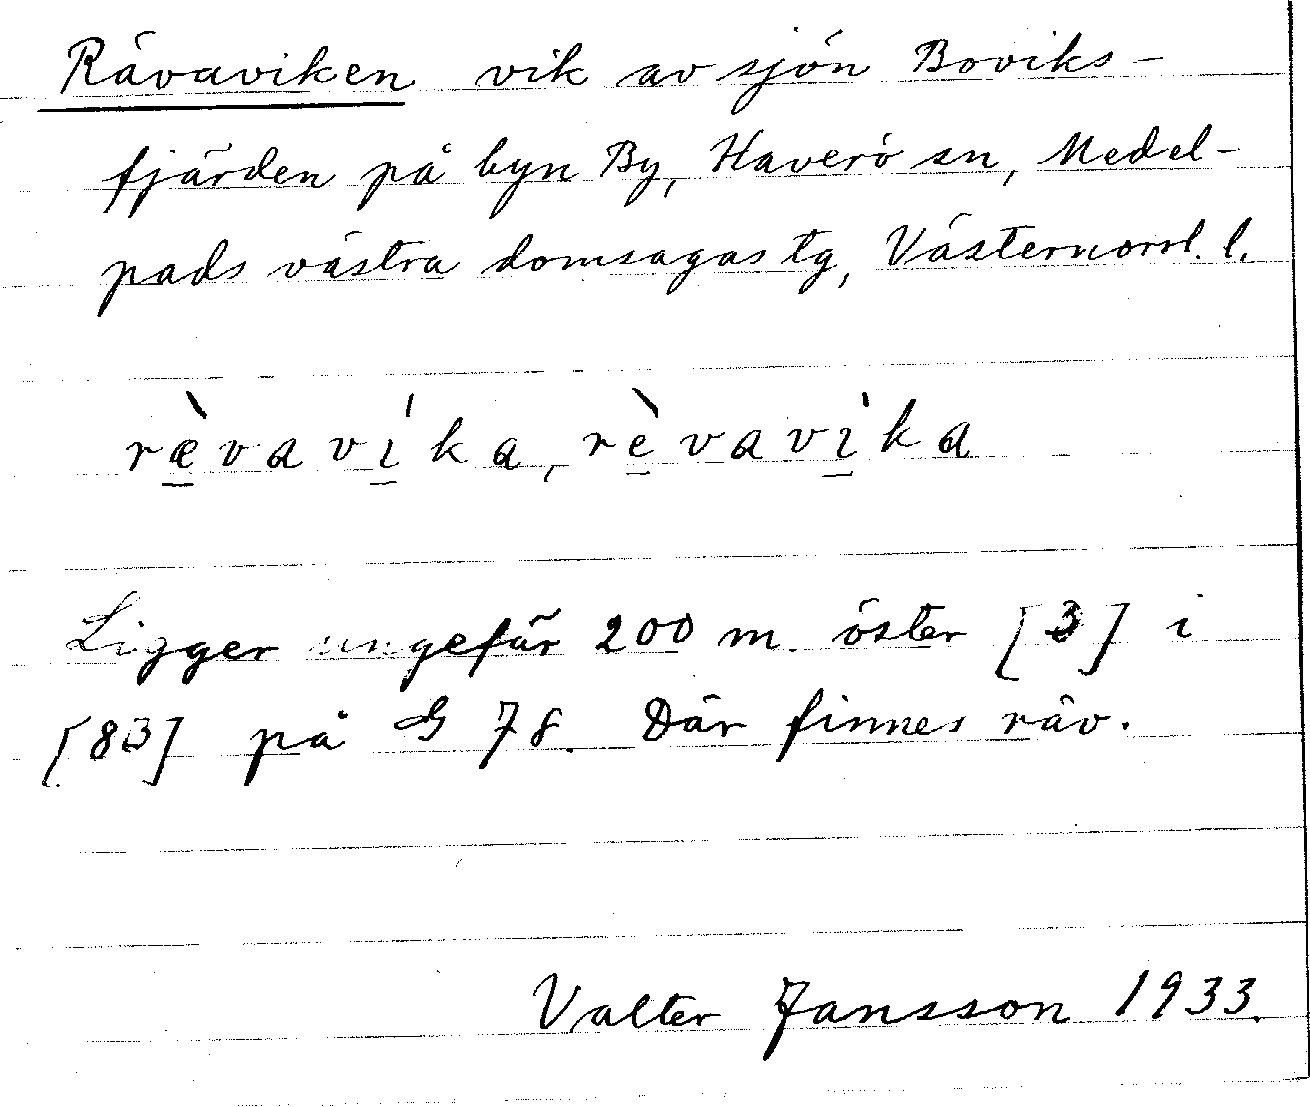 Rävaviken vik av sjön Boviks-
fjärden på byn By, Haverö sn, Medel-
pads västra domsagas tg, Västernorrl. l.
ræ̠̀vaví̠ka, rè̠vavì̠ka
Ligger ungefär 200 m. öster [3] i
[83] på G 78. Där finnes räv.
Valter Jansson 1933.